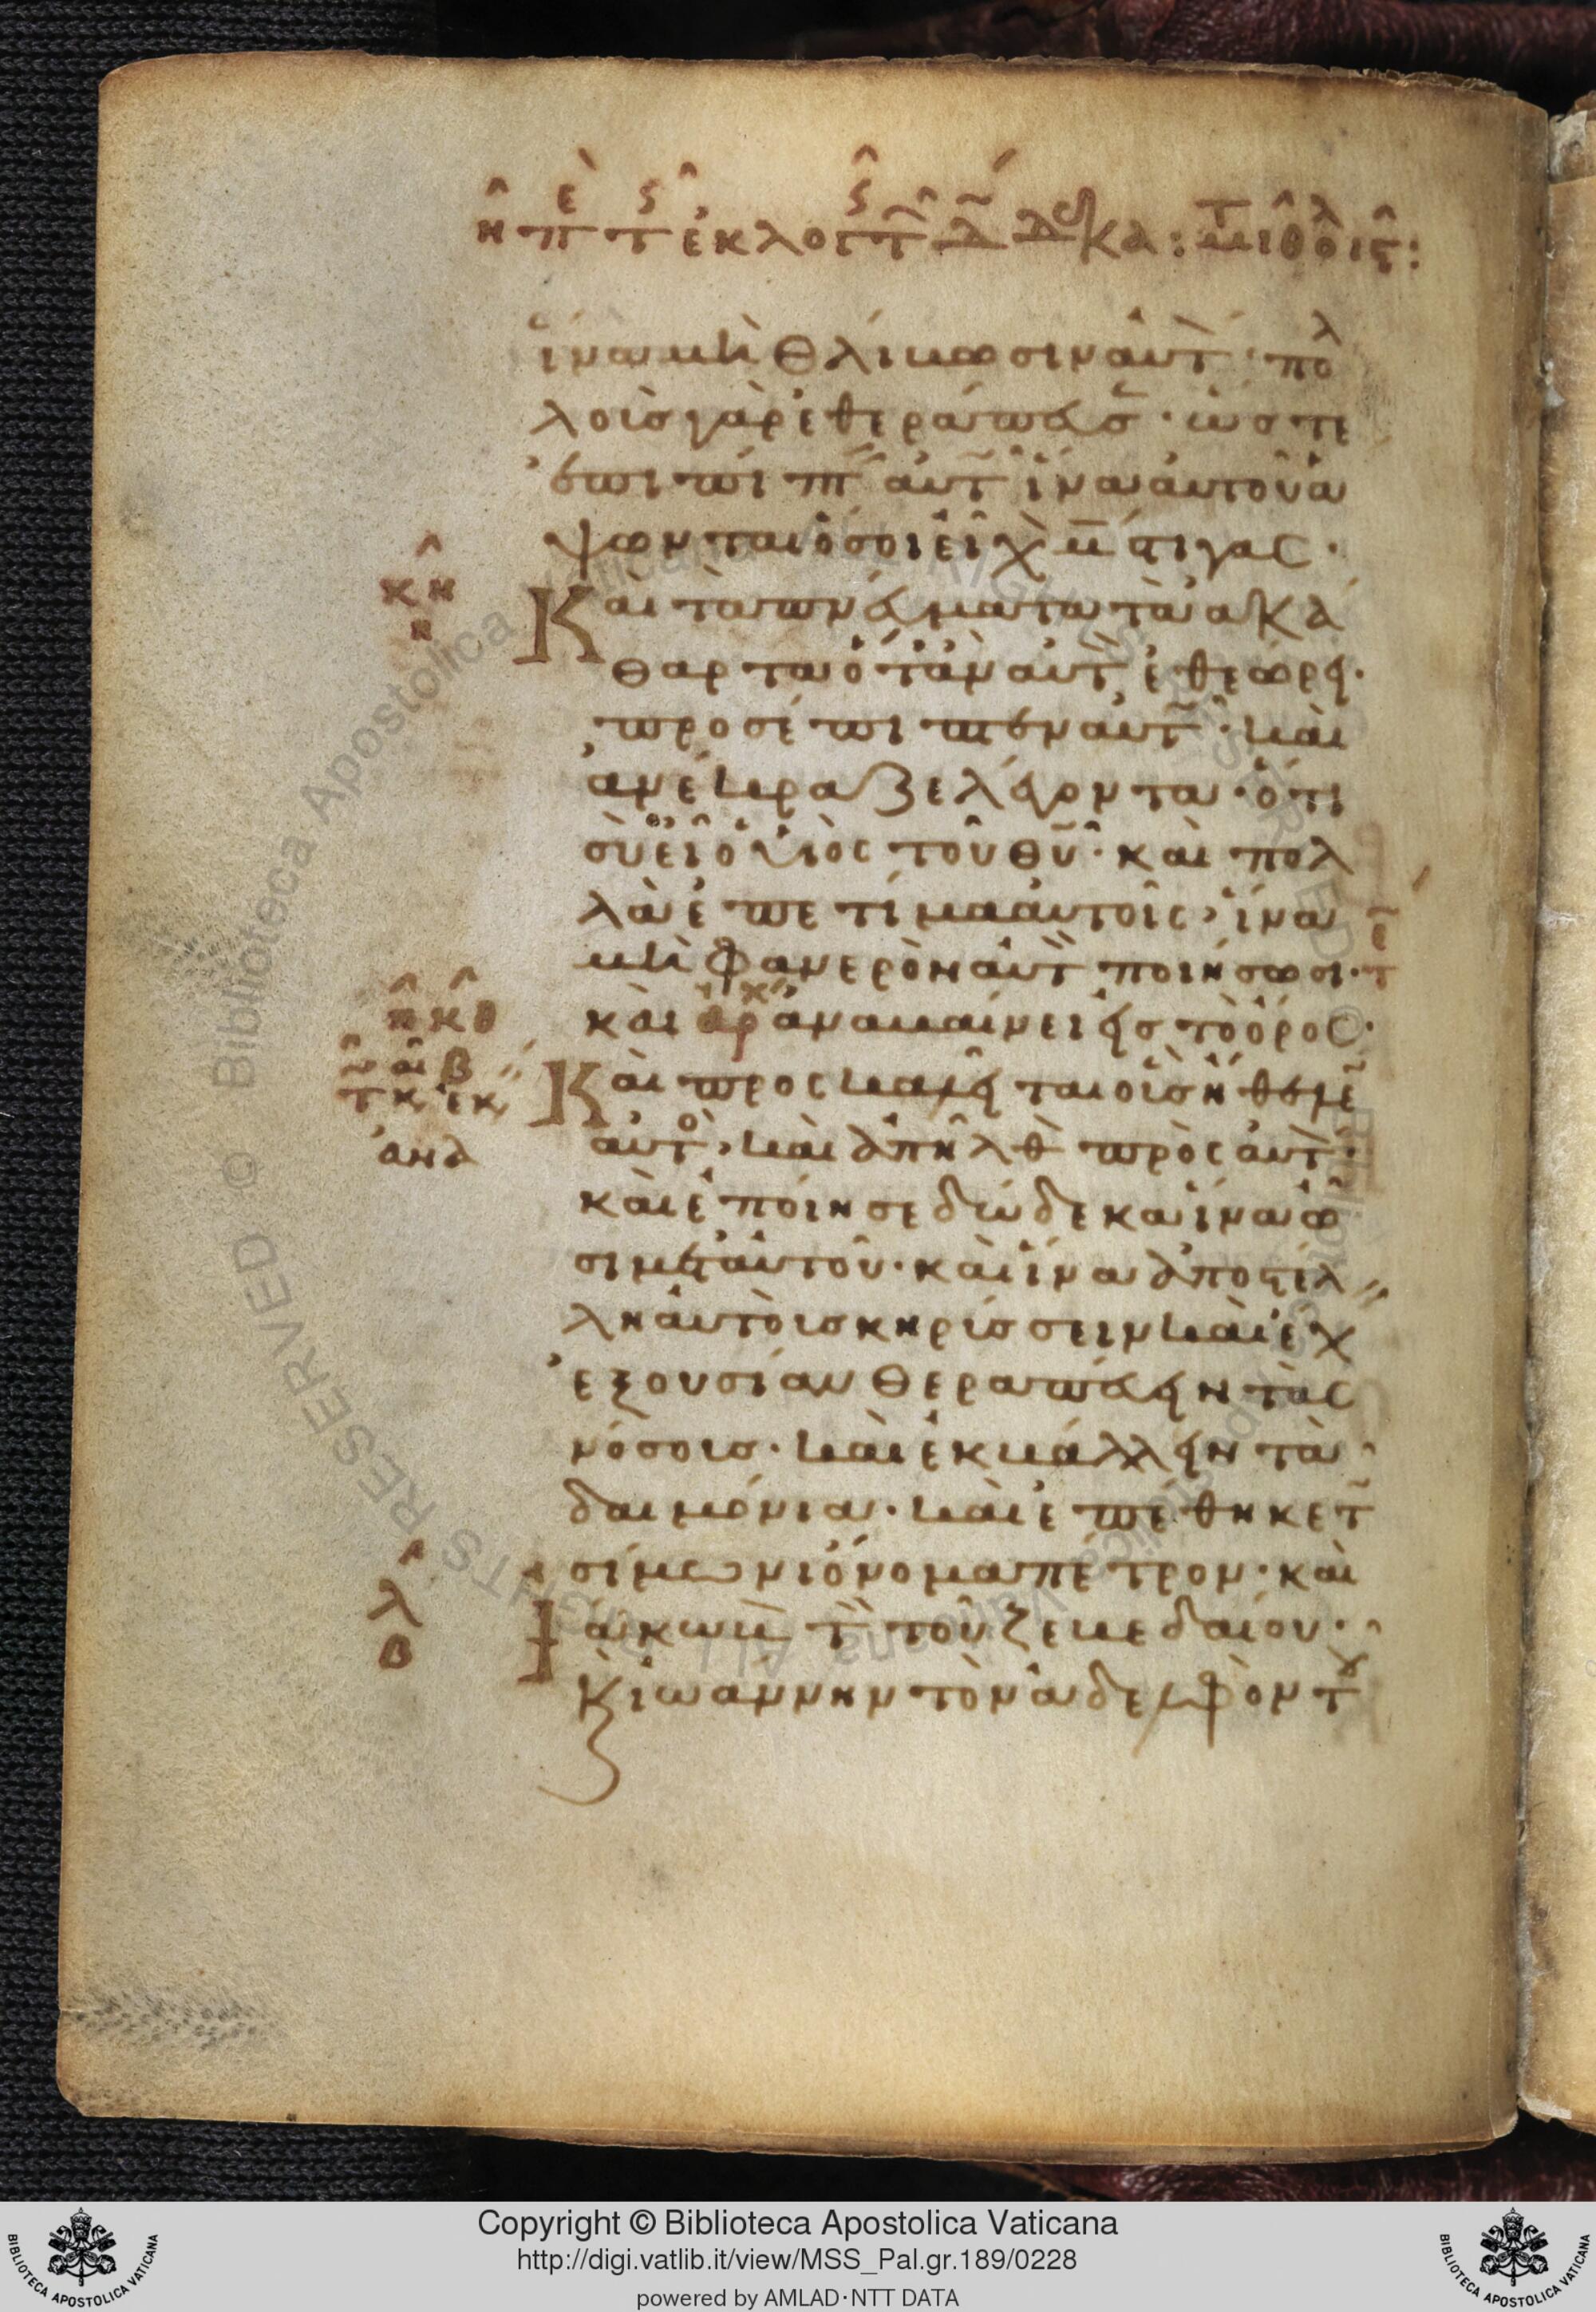 ἵνα μὴ θλίβωσιν αὐτ · πολ
λοὶσ γὰρ ἐθεράπευσ · ὥστε
ἐπιπίπτ αὐτ ἵνα αὐτοῦ ἅ
ψωνται ὅσοι εἶχ μάστιγας ·
Και τὰ πνεύματα τὰ ἀκά
θαρτα ὅταν αὐτ ἐθεώρει ·
προσέπιπτεν αὐτ · καὶ
ἀνέκραζε λέγοντα · ὅτι
σὺ εἶ ὁ υἱὸς τοῦ θυ · καὶ πολ
λὰ ἐπετίμα αὐτοῖς, ἵνα
μὴ φανερὸν αὐτ ποιήσωσι ·
καὶ ἀναβαίνει εἰσ τὸ ὄρος ·
Και προσκαλεῖται οἳσ ἤθελε
αὐτὸ, καὶ ἀπῆλθ πρὸς αὐτ ·
καὶ ἐποίησε δώδεκα ἵνα ὦ
σι μετ αὐτοῦ · καὶ ἵνα ἀποστέλ
λη αὐτοὶσ κηρίσσειν καὶ ἔχ
ἐξουσίαν θεραπεύειν τὰς
νόσοισ · καὶ ἐκβάλλειν τὰ
δαιμόνια · καὶ ἐπέθηκε τ
σίμωνι ὄνομα πέτρον · καὶ
Ἰάκωβ τ τοῦ ζεβεδαίου ·
κ ἰωάννην τὸν ἀδελφὸν τ
κη
η
κθ
λ
β
Copyright © Biblioteca Apostolica Vaticana
http://digi.vatlib.it/view/MSS_Pal.gr.189/0228
powered by AMLAD·NTT DATA
BIBLIOTECA APOSTOLICA VATICANA
BIBLIOTECA APOSTOLICA VATICANA